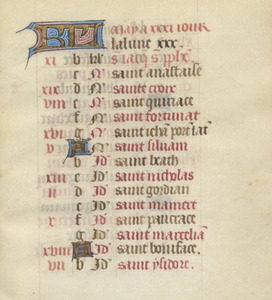 may a xxxi iour
la lune xxx.
xi b kl
c N saint anastaise
xix d N sainte croix
viii e N saint quiriace
f N saint fortunat
xvi g N saint iehan port lat
v A N saint siluain
b Id saint beath
xiii c Id saint nicholas
ii d Id saint gordian
e Id saint mamert
x f Id saint pancrace
g Id saint marcelin
xviii A Id saint boniface.
vii b Id saint ysidore.